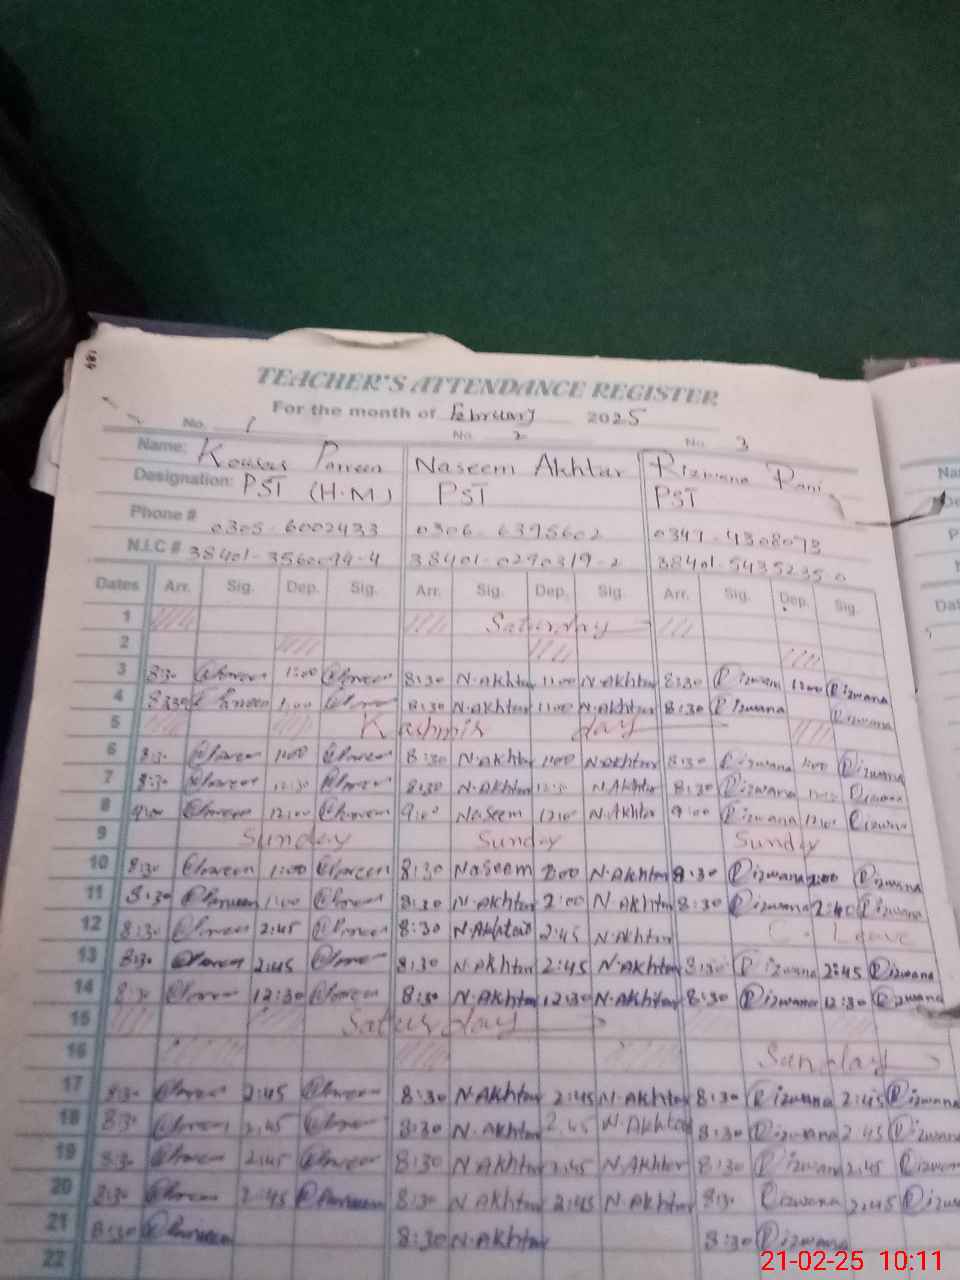 184
TEACHER'S ATTENDANCE REGISTER
For the month of February 2025
No. 1 No. 2 No. 3
Name: Kousar Parveen Naseem Akhtar Rizwana Rani
Designation: PST (H.M) PST PST
Phone # 0305-6002433 0306-6395602 0347-4308073
N.I.C # 38401-0290319-2
Dates Arr. Sig. Dep. Sig. Arr. Sig. Dep. Sig. Arr. Sig. Dep. Sig.
1 Saturday
2
3 8:30 1:00 8:30 N.Akhtar 1:00 N.Akhtar 8:30 Rizwana 1:00 Rizwana
4 8:30 1:00 8:30 N.Akhtar 1:00 N.Akhtar 8:30 Rizwana Rizwana
5 Kashmir day
6 8:30 1:00 8:30 N.Akhtar 1:00 N.Akhtar 8:30 Rizwana 1:00 Rizwana
7 8:30 12:30 8:30 N.Akhtar 12:30 N.Akhtar 8:30 Rizwana Rizwana
8 9:00 12:00 9:00 Naseem 12:00 N.Akhtar 9:00 Rizwana 12:00 Rizwana
9 Sunday Sunday Sunday
10 8:30 1:00 8:30 Naseem 2:00 N.Akhtar 8:30 Rizwana 2:00 Rizwana
11 8:30 1:00 8:30 N.Akhtar 2:00 N.Akhtar 8:30 Rizwana Rizwana
12 8:30 2:45 8:30 N.Akhtar 2:45 N.Akhtar C. Leave
13 8:30 2:45 8:30 N.Akhtar 2:45 N.Akhtar 8:30 Rizwana 2:45 Rizwana
14 8:30 12:30 8:30 N.Akhtar 12:30 N.Akhtar 8:30 Rizwana 12:30 Rizwana
15 Saturday
16 Sunday
17 8:30 2:45 8:30 N.Akhtar 2:45 N.Akhtar 8:30 Rizwana 2:45 Rizwana
18 8:30 2:45 8:30 N.Akhtar 2:45 N.Akhtar 8:30 Rizwana 2:45 Rizwana
19 8:30 2:45 8:30 N.Akhtar 2:45 N.Akhtar 8:30 Rizwana 2:45 Rizwana
20 8:30 2:45 Parveen 8:30 N.Akhtar 2:45 N.Akhtar 8:30 Rizwana 2:45 Rizwana
21 8:30 Parveen 8:30 N.Akhtar 8:30 Rizwana
22
21-02-25 10:11